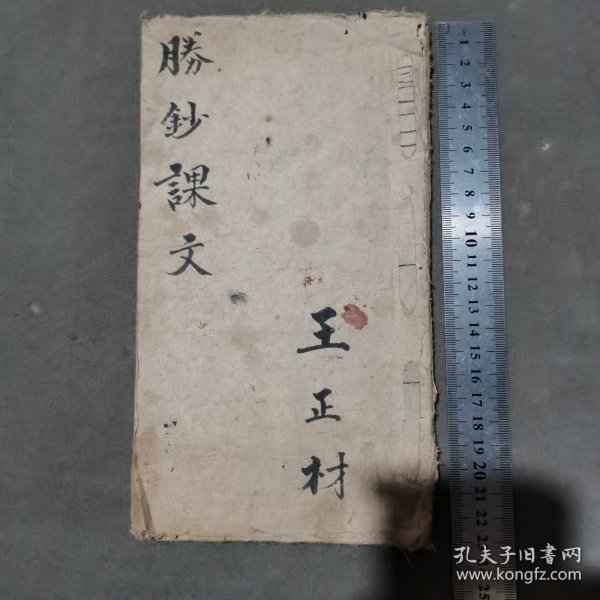 勝鈔課文
王正材
1
2
3
4
5
6
7
8
9
10
11
12
13
14
15
16
17
18
19
20
21
22
25
孔夫子旧書网
www.kongfz.com